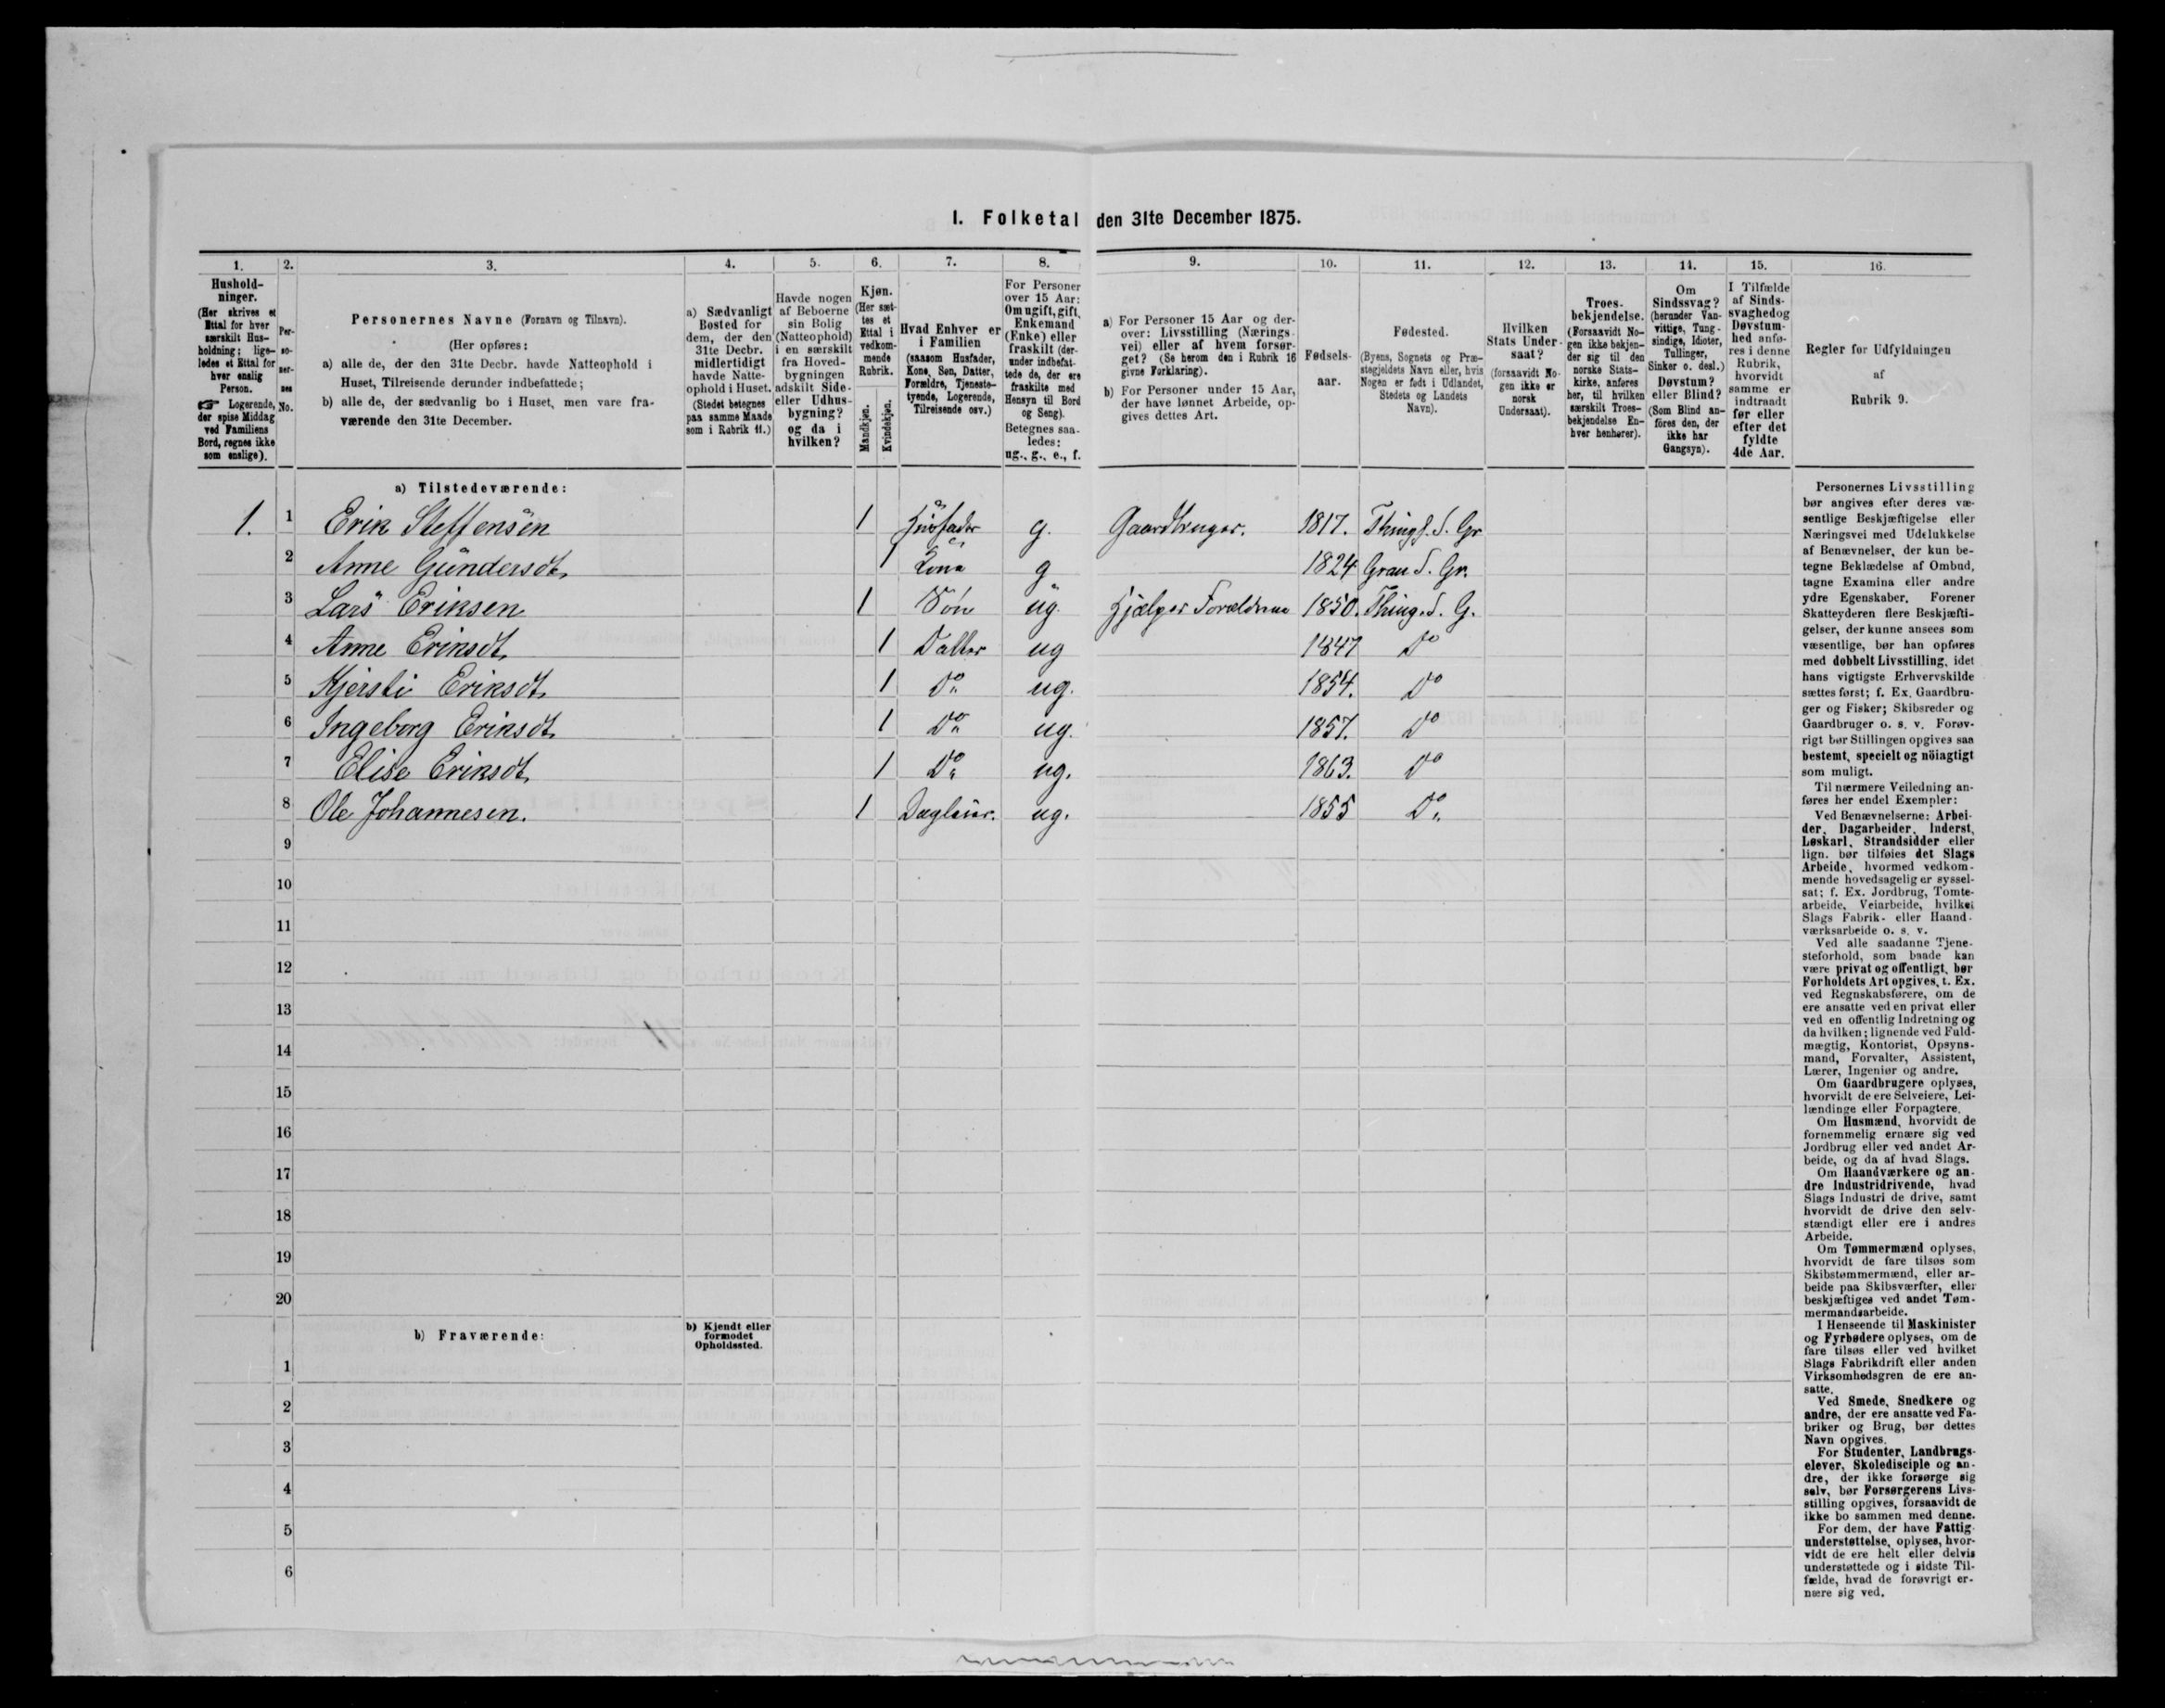 I. Folketal den 31te December 1875.
1.
Hushold-
ninger.
(Her skrives et
Ettal for hver
særskilt Hus-
holdning; lige-
ledes et Ettal for
hver enslig
Person.
☞ Logerende,
der spise Middag
ved Familiens
Bord, regnes ikke
som enslige).
2.
Per-
so-
ner-
nes
No.
3.
Personernes Navne (Fornavn og Tilnavn).
(Her opføres:
a) alle de, der den 31te Decbr. havde Natteophold i
Huset, Tilreisende derunder indbefattede;
b) alle de, der sædvanlig bo i Huset, men vare fra-
værende den 31te December.
4.
a) Sædvanligt
Bosted for
dem, der den
31te Decbr.
midlertidigt
havde Natte-
ophold i Huset.
(Stedet betegnes
paa samme Maade
som i Rubrik 11.)
5.
Havde nogen
af Beboerne
sin Bolig
(Natteophold)
i en særskilt
fra Hoved-
bygningen
adskilt Side-
eller Udhus-
bygning?
og da i
hvilken?
6.
Kjøn.
(Her sæt-
tes et
Ettal i
vedkom-
mende
Rubrik.
Mandkjøn.
Kvindekjøn.
7.
Hvad Enhver er
i Familien
(saasom Husfader,
Kone, Søn, Datter,
Forældre, Tjeneste-
tyende, Logerende,
Tilreisende osv.)
8.
For Personer
over 15 Aar:
Om ugift, gift,
Enkemand
(Enke) eller
fraskilt (der-
under indbefat-
tede de, der ere
fraskilte med
Hensyn til Bord
og Seng).
Betegnes saa-
ledes:
ug., g., e., f.
9.
a) For Personer 15 Aar og der-
over: Livsstilling (Nærings-
vei) eller af hvem forsør-
get? (Se herom den i Rubrik 16
givne Forklaring).
b) For Personer under 15 Aar,
der have lønnet Arbeide, op-
gives dettes Art.
10.
Fødsels-
aar.
11.
Fødested.
(Byens, Sognets og Præ-
stegjeldets Navn eller, hvis
Nogen er født i Udlandet,
Stedets og Landets
Navn).
12.
Hvilken
Stats Under-
saat?
(forsaavidt No-
gen ikke er
norsk
Undersaat).
13.
Troes-
bekjendelse.
(Forsaavidt No-
gen ikke bekjen-
der sig til den
norske Stats-
kirke, anføres
her, til hvilken
særskilt Troes-
bekjendelse En-
hver henhører).
14.
Om
Sindssvag?
(herunder Van-
vittige, Tung-
sindige, Idioter,
Tullinger,
Sinker o. desl.)
Døvstum?
eller Blind?
(Som Blind an-
føres den, der
ikke har
Gangsyn).
15.
I Tilfælde
af Sinds-
svaghed og
Døvstum-
hed anfø-
res i denne
Rubrik,
hvorvidt
samme er
indtraadt
før eller
efter det
fyldte
4de Aar.
16.
Regler for Udfyldningen
af
Rubrik 9.
a) Tilstedeværende:
1. 1 Erik Steffensen 1 Husfader g. Gaardbruger. 1817. Thingl. S. Gr
2 Anne Gundersdt. 1 Kone g 1824 Gran S. Gr.
3 Lars Eriksen 1 Søn ug. Hjælper Forældrene 1850. Thing. S. G.
4 Anne Eriksdt. 1 Datter ug 1847 Do
5 Kjersti Eriksdt. 1 Do ug. 1854. Do
6 Ingeborg Eriksdt. 1 Do ug. 1857. Do
7 Elise Eriksdt. 1 Do ug. 1863. Do
8 Ole Johannesen. 1 Dagleier. ug. 1855 Do
9
10
11
12
13
14
15
16
17
18
19
20
b) Fraværende:
b) Kjendt eller
formodet
Opholdssted.
1
2
3
4
5
6
Personernes Livsstilling
bør angives efter deres væ-
sentlige Beskjæftigelse eller
Næringsvei med Udelukkelse
af Benævnelser, der kun be-
tegne Beklædelse af Ombud,
tagne Examina eller andre
ydre Egenskaber. Forener
Skatteyderen flere Beskjæfti-
gelser, der kunne ansees som
væsentlige, bør han opføres
med dobbelt Livsstilling, idet
hans vigtigste Erhvervskilde
sættes først; f. Ex. Gaardbru-
ger og Fisker; Skibsreder og
Gaardbruger o. s. v. Forøv-
rigt bør Stillingen opgives saa
bestemt, specielt og nöiagtigt
som muligt.
Til nærmere Veiledning an-
føres her endel Exempler:
Ved Benævnelserne: Arbei-
der, Dagarbeider, Inderst,
Løskarl, Strandsidder eller
lign. bør tilføies det Slags
Arbeide, hvormed vedkom-
mende hovedsagelig er syssel-
sat; f. Ex. Jordbrug, Tomte-
arbeide, Veiarbeide, hvilket
Slags Fabrik- eller Haand-
værksarbeide o. s. v.
Ved alle saadanne Tjene-
steforhold, som baade kan
være privat og offentligt, bør
Forholdets Art opgives, t. Ex.
ved Regnskabsførere, om de
ere ansatte ved en privat eller
ved en offentlig Indretning og
da hvilken; lignende ved Fuld-
mægtig, Kontorist, Opsyns-
mand, Forvalter, Assistent,
Lærer, Ingeniør og andre.
Om Gaardbrugere oplyses,
hvorvidt de ere Selveiere, Lei-
lændinge eller Forpagtere.
Om Husmænd, hvorvidt de
fornemmelig ernære sig ved
Jordbrug eller ved andet Ar-
beide, og da af hvad Slags.
Om Haandværkere og an-
dre Industridrivende, hvad
Slags Industri de drive, samt
hvorvidt de drive den selv-
stændigt eller ere i andres
Arbeide.
Om Tømmermænd oplyses,
hvorvidt de fare tilsøs som
Skibstømmermænd, eller ar-
beide paa Skibsværfter, eller
beskjæftiges ved andet Tøm-
mermandsarbeide.
I Henseende til Maskinister
og Fyrbødere oplyses, om de
fare tilsøs eller ved hvilket
Slags Fabrikdrift eller anden
Virksomhedsgren de ere an-
satte.
Ved Smede, Snedkere og
andre, der ere ansatte ved Fa-
briker og Brug, bør dettes
Navn opgives.
For Studenter, Landbrugs-
elever, Skoledisciple og an-
dre, der ikke forsørge sig
selv, bør Forsørgerens Livs-
stilling opgives, forsaavidt de
ikke bo sammen med denne.
For dem, der have Fattig-
understøttelse, oplyses, hvor-
vidt de ere helt eller delvis
understøttede og i sidste Til-
fælde, hvad de forøvrigt er-
nære sig ved.